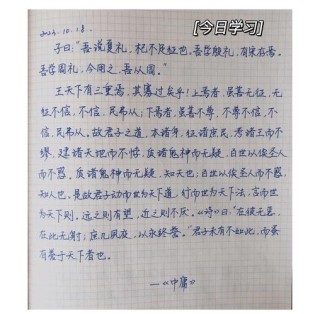 [今日学习]
2023.10.18.
子曰:"吾说夏礼,杞不足征也。吾学殷礼,有宋存焉。
吾学周礼,今用之,吾从周。"
王天下有三重焉,其寡过矣乎!上焉者,虽善无征,无
征不信,不信,民弗从;下焉者,虽善不尊,不尊不信,不
信,民弗从。故君子之道,本诸身,征诸庶民,考诸三王而不
缪,建诸天地而不悖,质诸鬼神而无疑,百世以俟圣人
而不惑。质诸鬼神而无疑,知天也;百世以俟圣人而不惑,
知人也。是故君子动而世为天下道,行而世为天下法,言而世
为天下则。远之则有望,近之则不厌。《诗》曰:"在彼无恶,
在此无射;庶几夙夜,以永终誉。"君子未有不如此,而蚤
有誉于天下者也。
——《中庸》